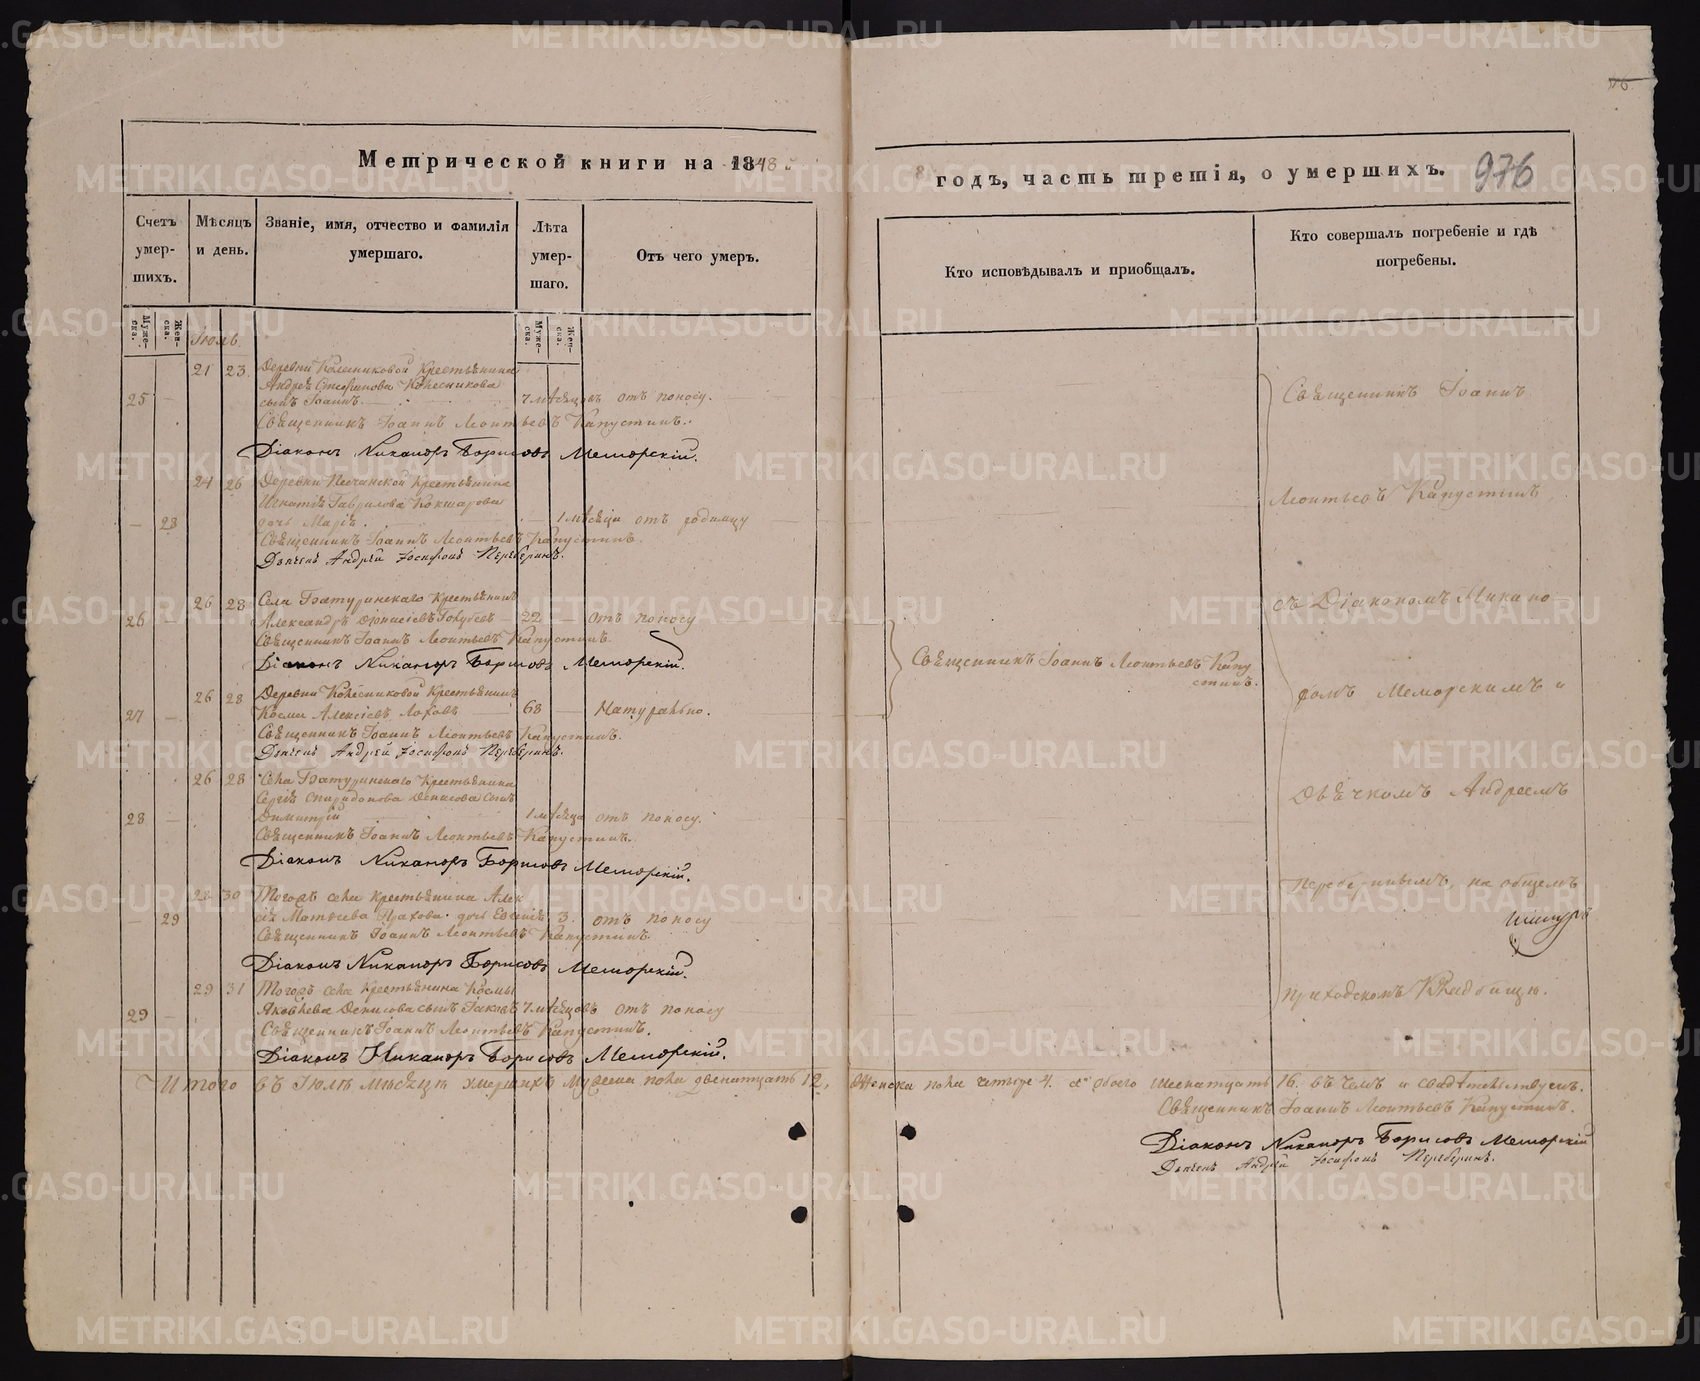 Метрической книги на 1848
годъ, часть третія, о умершихъ. 976
Счетъ умер-шихъ.
Мѣсяцъ и день.
Званіе, имя, отчество и фамилія умершаго.
Лѣта умер-шаго.
Отъ чего умеръ.
Кто исповѣдывалъ и приобщалъ.
Кто совершалъ погребеніе и гдѣ погребены.
Муже-ска. Жен-ска.
Муже-ска. Жен-ска.
Іюль.
21 23 Деревни Колесниковой Крестьянина
Андрея Стефанова Колесникова
25 — сынъ Іоаннъ. 7 мѣсяцовъ отъ поносу.
Священникъ Іоаннъ Леонтьевъ Капустинъ.
Діаконъ Никаноръ Борисовъ Меморскій.
24 26 Деревни Песчанской Крестьянина
Игнатія Гаврилова Кокшарова
— 28 дочь Марія. — 1 мѣсяца отъ родимцу
Священникъ Іоаннъ Леонтьевъ Капустинъ.
Дьячекъ Андрей Іосифовъ Переберинъ.
26 28 Села Батуринскаго Крестьянинъ
26 — Александръ Діонисіевъ Голубевъ 22 — отъ поносу
Священникъ Іоаннъ Леонтьевъ Капустинъ
Діаконъ Никаноръ Борисовъ Меморскій.
26 28 Деревни Колесниковой Крестьянинъ
27 — Косма Алексіевъ 68 — Натурально.
Священникъ Іоаннъ Леонтьевъ Капустинъ.
Дьячекъ Андрей Іосифовъ Переберинъ.
26 28 Села Батуринскаго Крестьянина
Сергія Спиридонова Денисова сынъ
28 — Димитрій 1 мѣсяца отъ поносу.
Священникъ Іоаннъ Леонтьевъ Капустинъ.
Діаконъ Никаноръ Борисовъ Меморскій.
28 30 Тогоже села крестьянина Алек
— 29 сія Матвѣева дочь Евгенія 3. отъ поносу
Священникъ Іоаннъ Леонтьевъ Капустинъ.
Діаконъ Никаноръ Борисовъ Меморскій.
29 31 Тогоже села Крестьянина Космы
29 — Яковлева Денисова сынъ Іаковъ 7 мѣсяцовъ отъ поносу
Священникъ Іоаннъ Леонтьевъ Капустинъ.
Діаконъ Никаноръ Борисовъ Меморскій.
Итого въ Іюлѣ мѣсяцѣ умершихъ Мужеска пола двенатцать 12,
Священникъ Іоаннъ Леонтьевъ Капу
стинъ.
Священникъ Іоаннъ
Леонтьевъ Капустинъ,
съ Діакономъ Никано
ромъ Меморскимъ и
Дьячкомъ Андреемъ
Переберинымъ, на общемъ
приходскомъ Кладбищѣ.
Женска пола четыре 4. а обоего Шеснатцать 16. въ чемъ и свидѣтельствуемъ.
Священникъ Іоаннъ Леонтьевъ Капустинъ.
Діаконъ Никаноръ Борисовъ Меморскій
Дьячекъ Андрей Іосифовъ Переберинъ.
METRIKI.GASO-URAL.RU